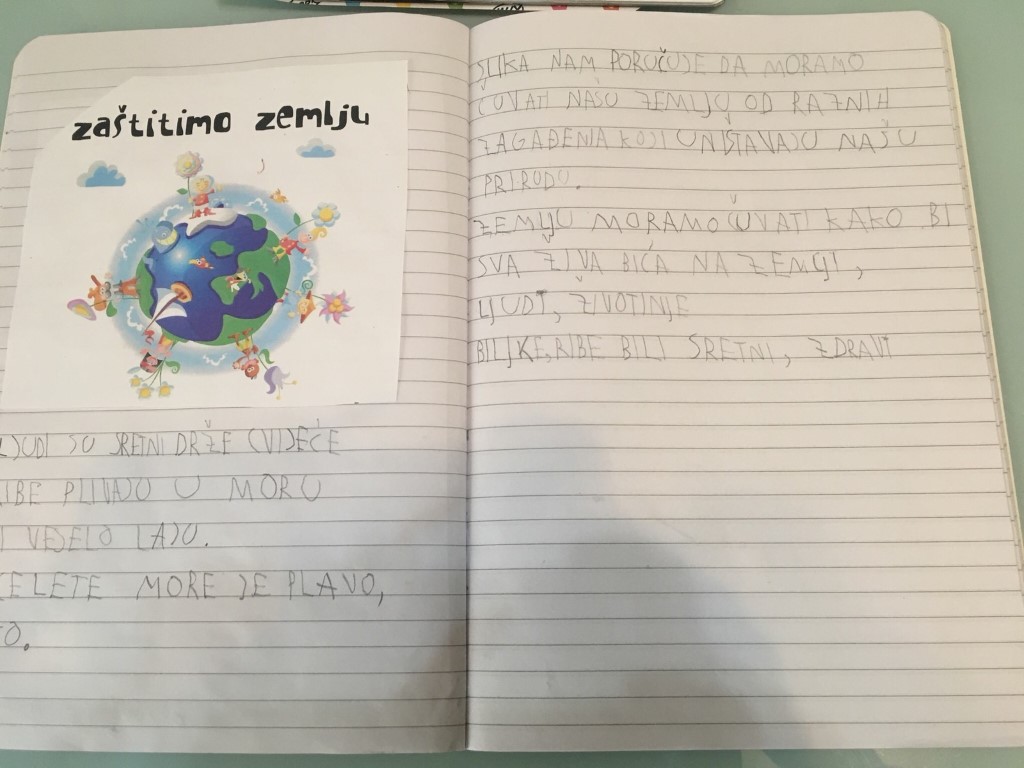 zaštitimo zemlju
LJUDI SU SRETNI DRŽE CVIJEĆE
RIBE PLIVAJU U MORU
I VESELO LAJU.
LETE MORE JE PLAVO,
SLIKA NAM PORUČUJE DA MORAMO
ČUVATI NAŠU ZEMLJU OD RAZNIH
ZAGAĐENJA KOJI UNIŠTAVAJU NAŠU
PRIRODU.
ZEMLJU MORAMO ČUVATI KAKO BI
SVA ŽIVA BIĆA NA ZEMLJI,
LJUDI, ŽIVOTINJE
BILJKE, RIBE BILI SRETNI, ZDRAVI